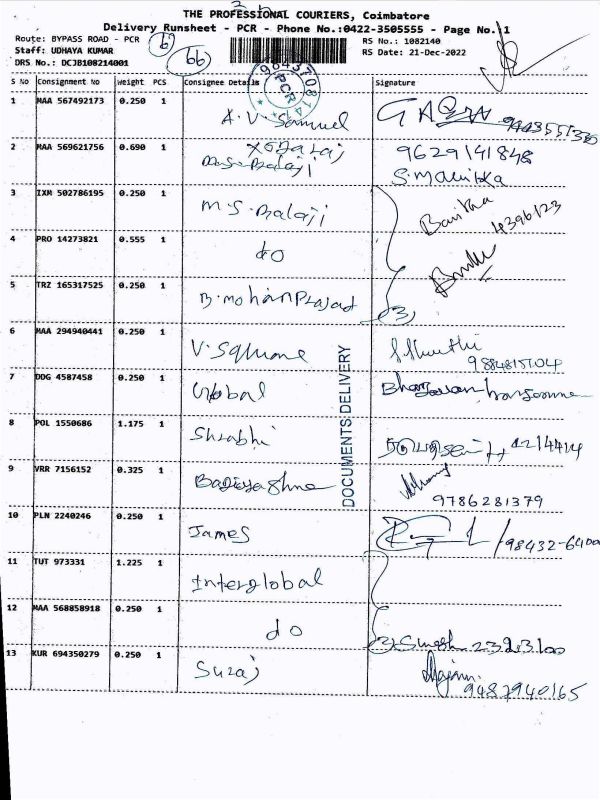 THE PROFESSIONAL COURIERS, Coimbatore
Delivery Runsheet - PCR - Phone No.:0422-3505555 - Page No. 1
Route: BYPASS ROAD - PCR
Staff: UDHAYA KUMAR
DRS No.: DCJB108214001
RS No.: 1082140
RS Date: 21-Dec-2022
6
66
PCR
S No Consignment No Weight PCS Consignee Details Signature
1 MAA 567492173 0.250 1 A.V. Samuel
2 MAA 569621756 0.690 1 9629141848
3 IXM 502786195 0.250 1 M.S. Balaji 4396123
4 PRO 14273821 0.555 1 do
5 TRZ 165317525 0.250 1 B. mohan Prasad 3
6 MAA 294940441 0.250 1
7 DDG 4587458 0.250 1 Global
8 POL 1550686 1.175 1 4214414
9 VRR 7156152 0.325 1 9786281379
10 PLN 2240246 0.250 1 James 98432-6400
11 TUT 973331 1.225 1 Interglobal
12 MAA 568858918 0.250 1 do
13 KUR 694350279 0.250 1 Suraj 9487940165
DOCUMENTS DELIVERY